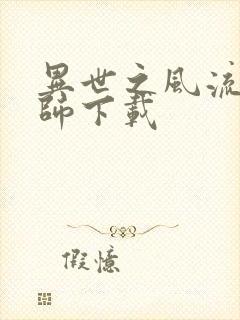 異世之風流
師下載
假憶